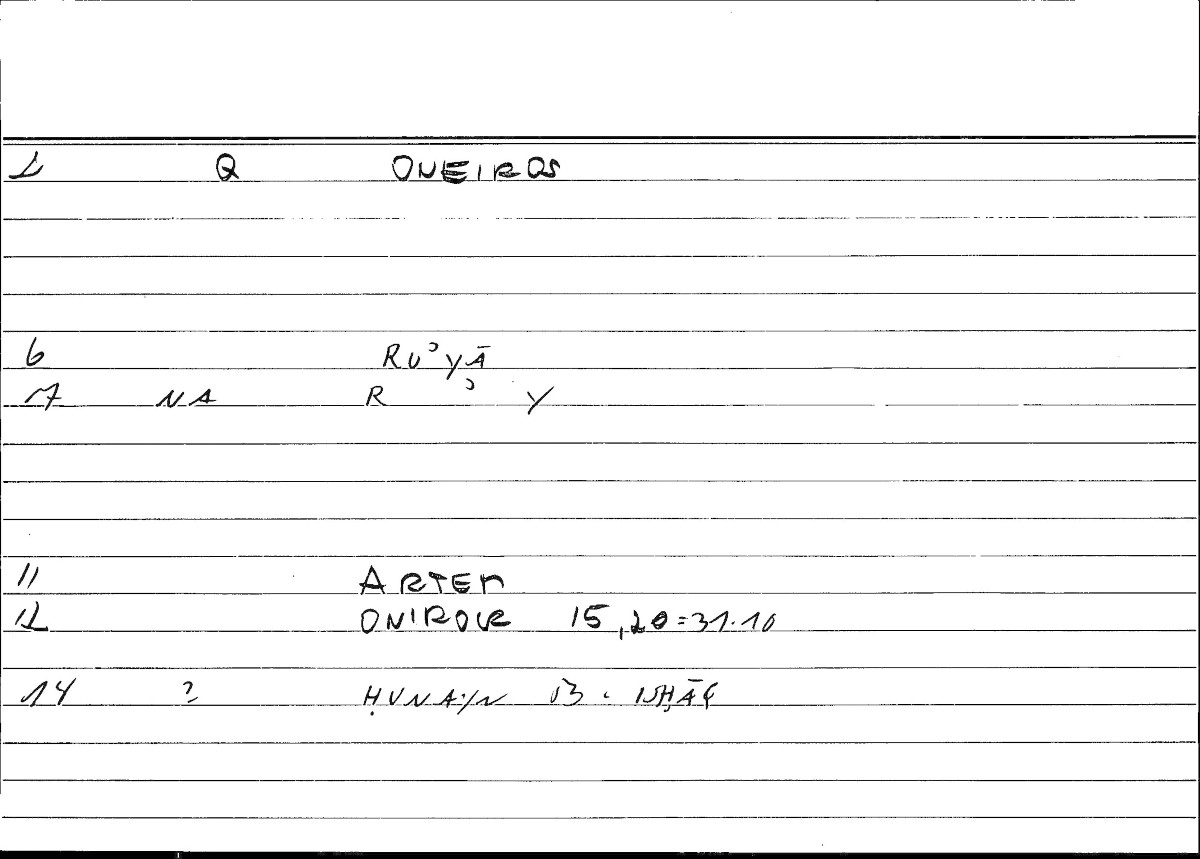 1 Q ONEIROS
6 RUʾYĀ
7 NA R ʾ Y
11 ARTEM
12 ONIROCR 15,20=31.10
14 ? ḤUNAYN B. ISḤĀQ